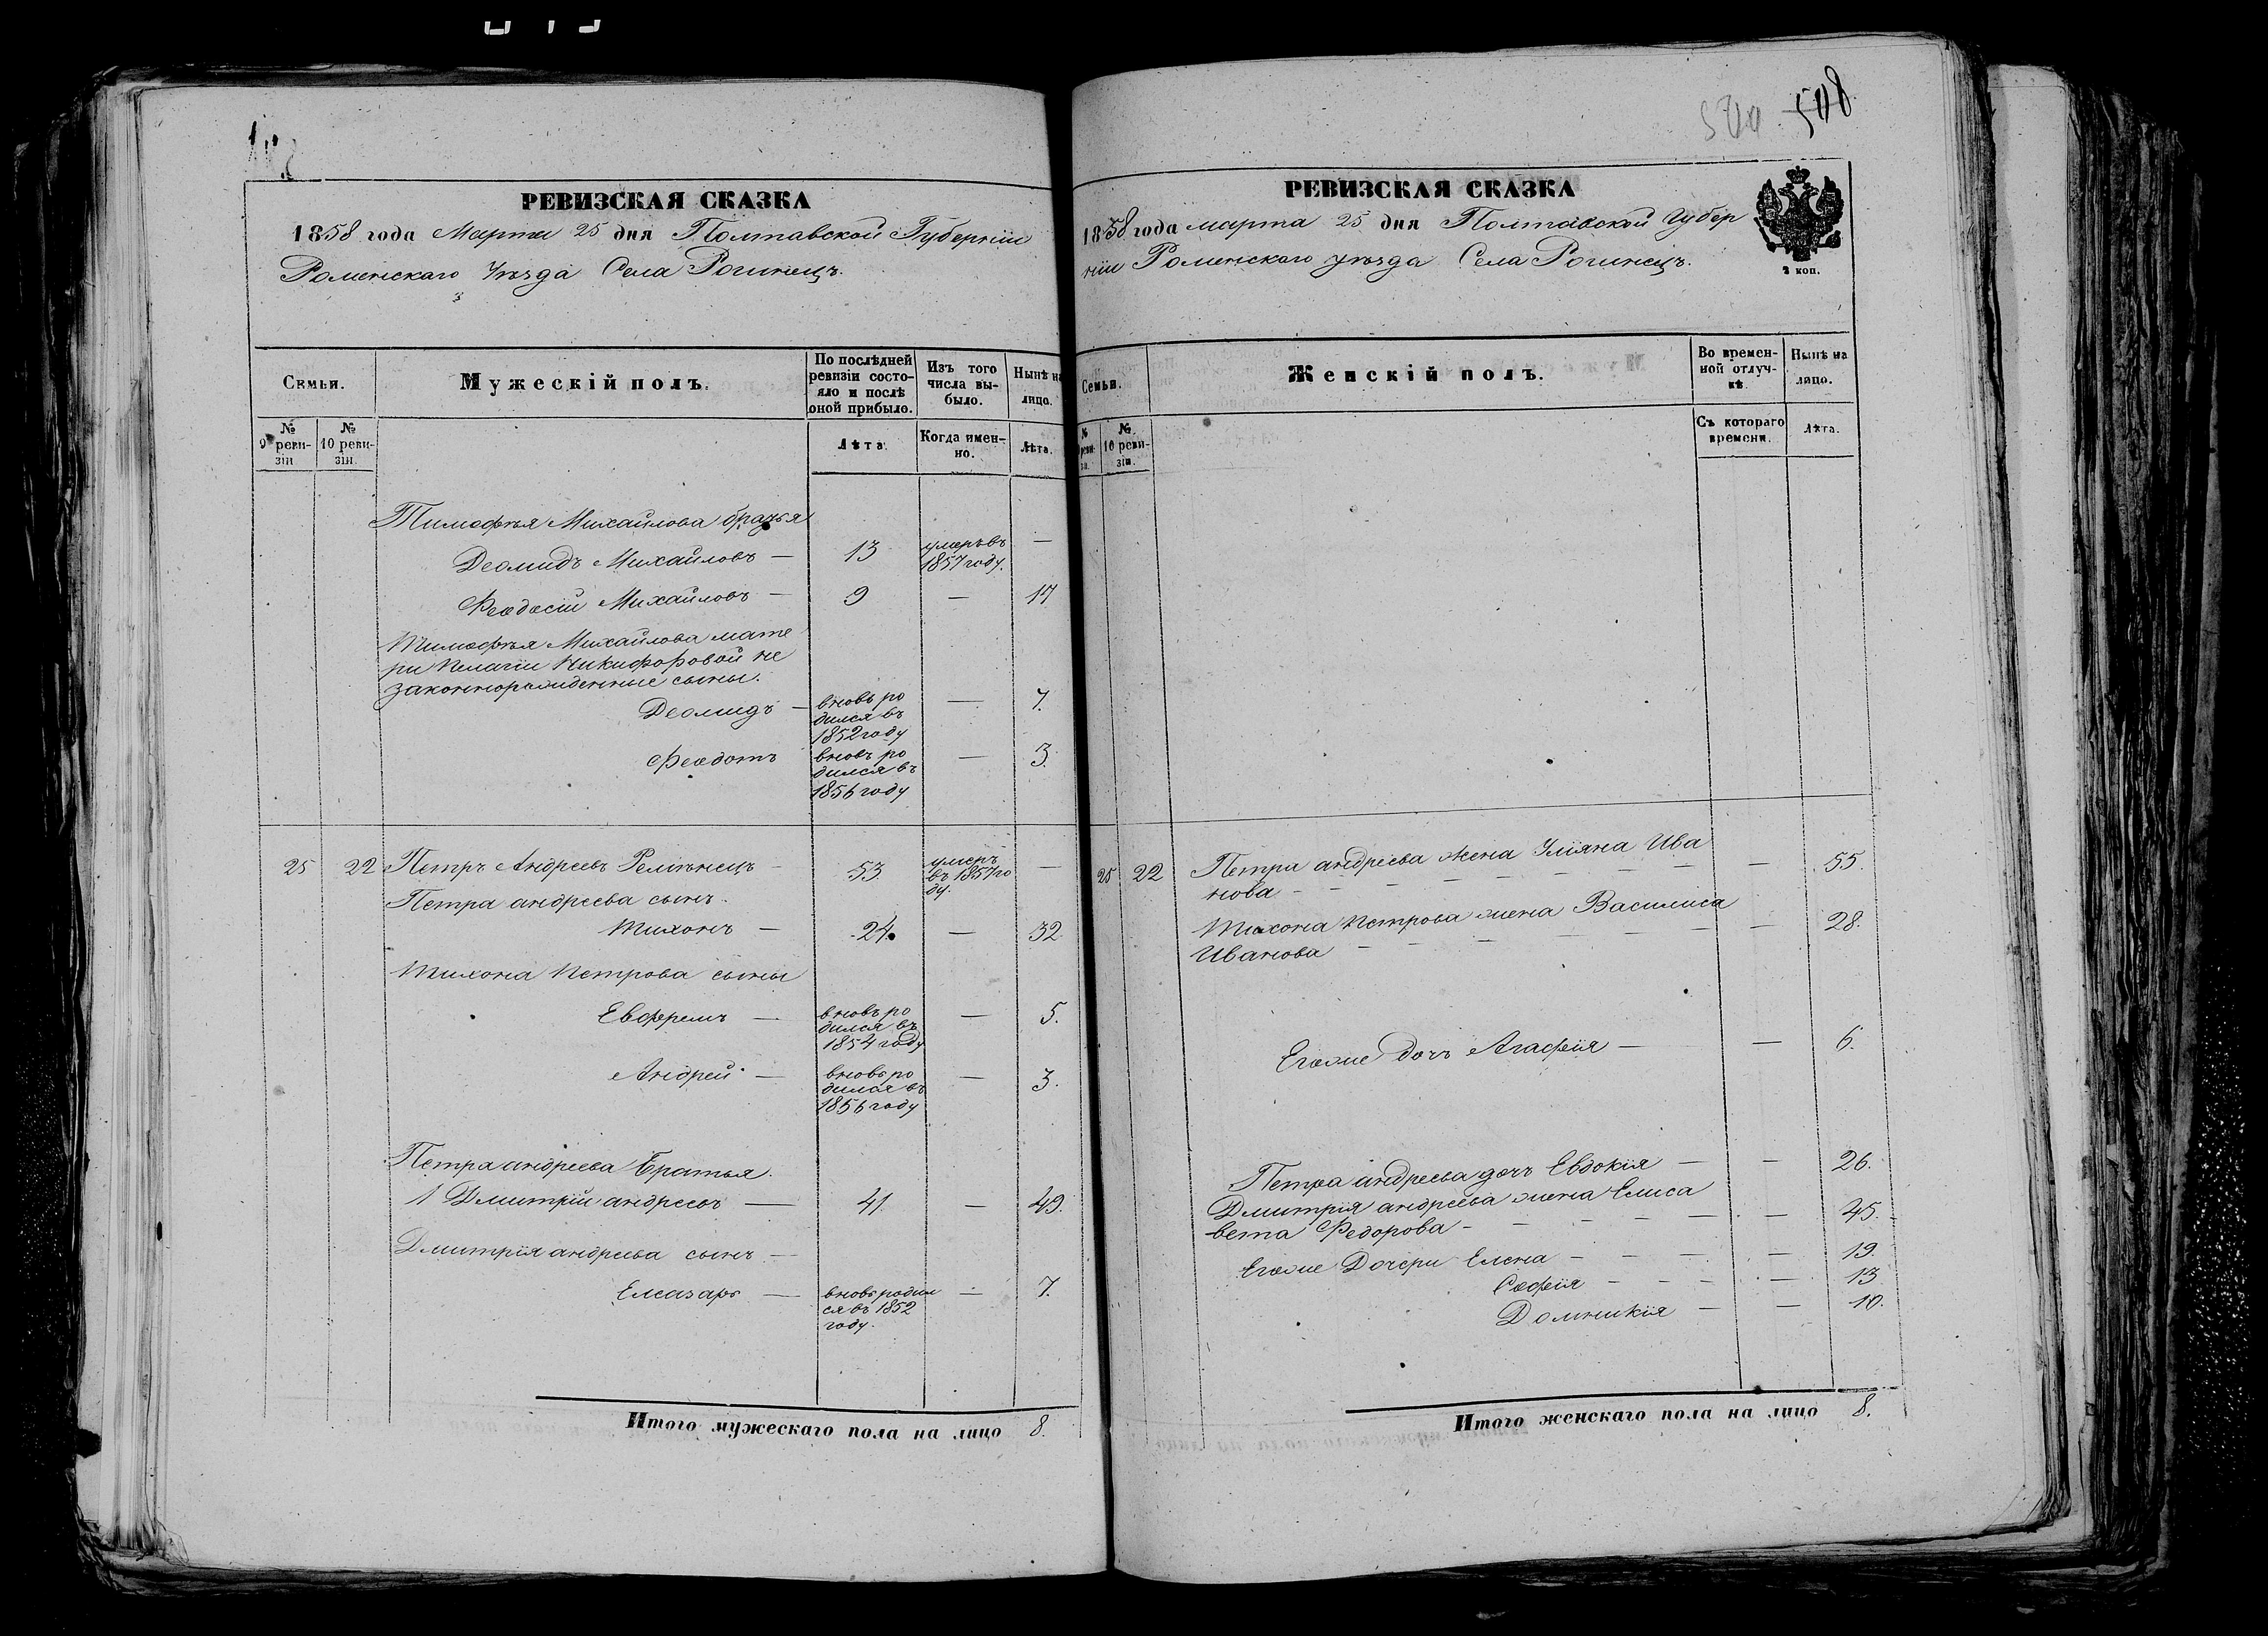 508
РЕВИЗСКАЯ СКАЗКА
1858 года Марта 25 дня Полтавской Губерніи
Роменскаго Уѣзда Села Рогинецъ.
Семьи.
Мужескій полъ.
По послѣдней ревизіи состояло и послѣ оной прибыло.
Изъ того числа выбыло.
Нынѣ на лицо.
№ 9 ревизіи
№ 10 ревизіи.
Лѣта.
Когда именно.
Лѣта.
Тимофѣя Михайлова братья
Деомидъ Михайловъ — 13 умеръ въ 1857 году. —
Феодосій Михайловъ — 9 — 17
Тимофѣя Михайлова мате
ри Пелагіи Никифоровой не
законнорожденные сыны.
Деомидъ — вновь родился въ 1852 году — 7.
Феодотъ вновь родился въ 1856 году — 3.
25 22 Петръ Андреевъ Ремѣнецъ — 53. умеръ въ 1857 году. —
Петра андреева сынъ.
Тихонъ — 24. — 32
Тихона Петрова сыны
Евфремъ — вновь родился въ 1854 году — 5.
Андрей — вновь родился въ 1856 году — 3.
Петра андреева Братья.
1 Дмитрій андреевъ — 41. — 49.
Дмитрія андреева сынъ —
Елеазаръ — вновь родился въ 1852 году. — 7.
Итого мужескаго пола на лицо 8.
РЕВИЗСКАЯ СКАЗКА
1858 года марта 25 дня Полтавской Губер
ніи Роменскаго уѣзда Села Рогинецъ.
2 коп.
Семьи.
Женскій полъ.
Во временной отлучкѣ.
Нынѣ на лицо.
№ 10 ревизіи.
Съ котораго времени.
Лѣта.
25 22 Петра андреева жена Уліяна Ива
нова — 55.
Тихона Петрова жена Василиса
Иванова — 28.
Егоже дочь Агафія — — 6.
Петра андреева дочь Евдокія — — 26.
Дмитрія андреева жена Елиса
вета Федорова — 45.
Егоже Дочери Елена — 19.
Софія — 13
Домникія — — 10.
Итого женскаго пола на лицо 8.